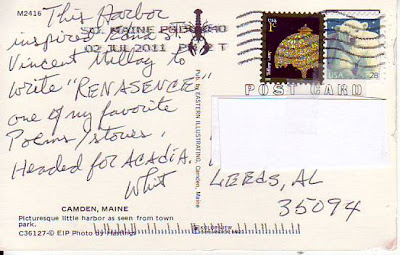 M2416
This Harbor
inspired Edna St.
Vincent Millay to
write "RENASENCE"
one of my favorite
Poems/stories.
Headed for ACADIA.
Whit
CAMDEN, MAINE
Picturesque little harbor as seen from town
park.
C36127-© EIP Photo by Hastings
02 JUL 2011 PM
Pub. by EASTERN ILLUSTRATING, Camden, Maine
USA
1¢
Tiffany Lamp
USA 28
POST CARD
LEEDS, AL
35094